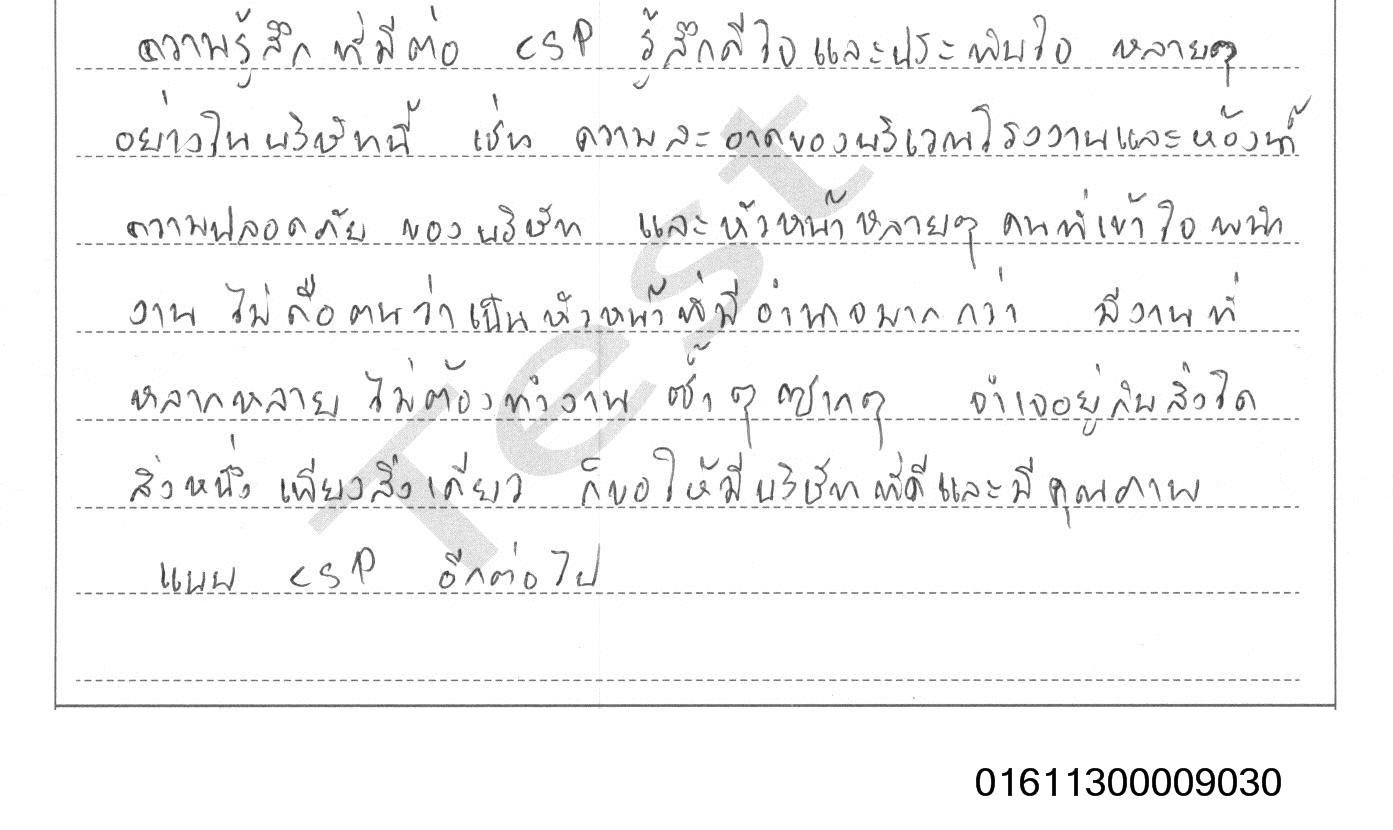 ความรู้สึกที่มีต่อ CSP รู้สึกดีใจและประทับใจ หลายๆ
อย่างในบริษัทนี้ เช่น ความสะอาดของบริเวณโรงงานและห้องน้ำ
ความปลอดภัย ของบริษัท และหัวหน้าหลายๆ คนที่เข้าใจพนัก
งาน ไม่ถือตนว่าเป็นหัวหน้าที่มีอำนาจมากกว่า มีงานที่
หลากหลาย ไม่ต้องทำงาน ซ้ำๆ ซากๆ จำเจอยู่กับสิ่งใด
สิ่งหนึ่ง เพียงสิ่งเดียว ก็ขอให้มีบริษัทที่ดีและมีคุณภาพ
แบบ CSP อีกต่อไป
Test
01611300009030